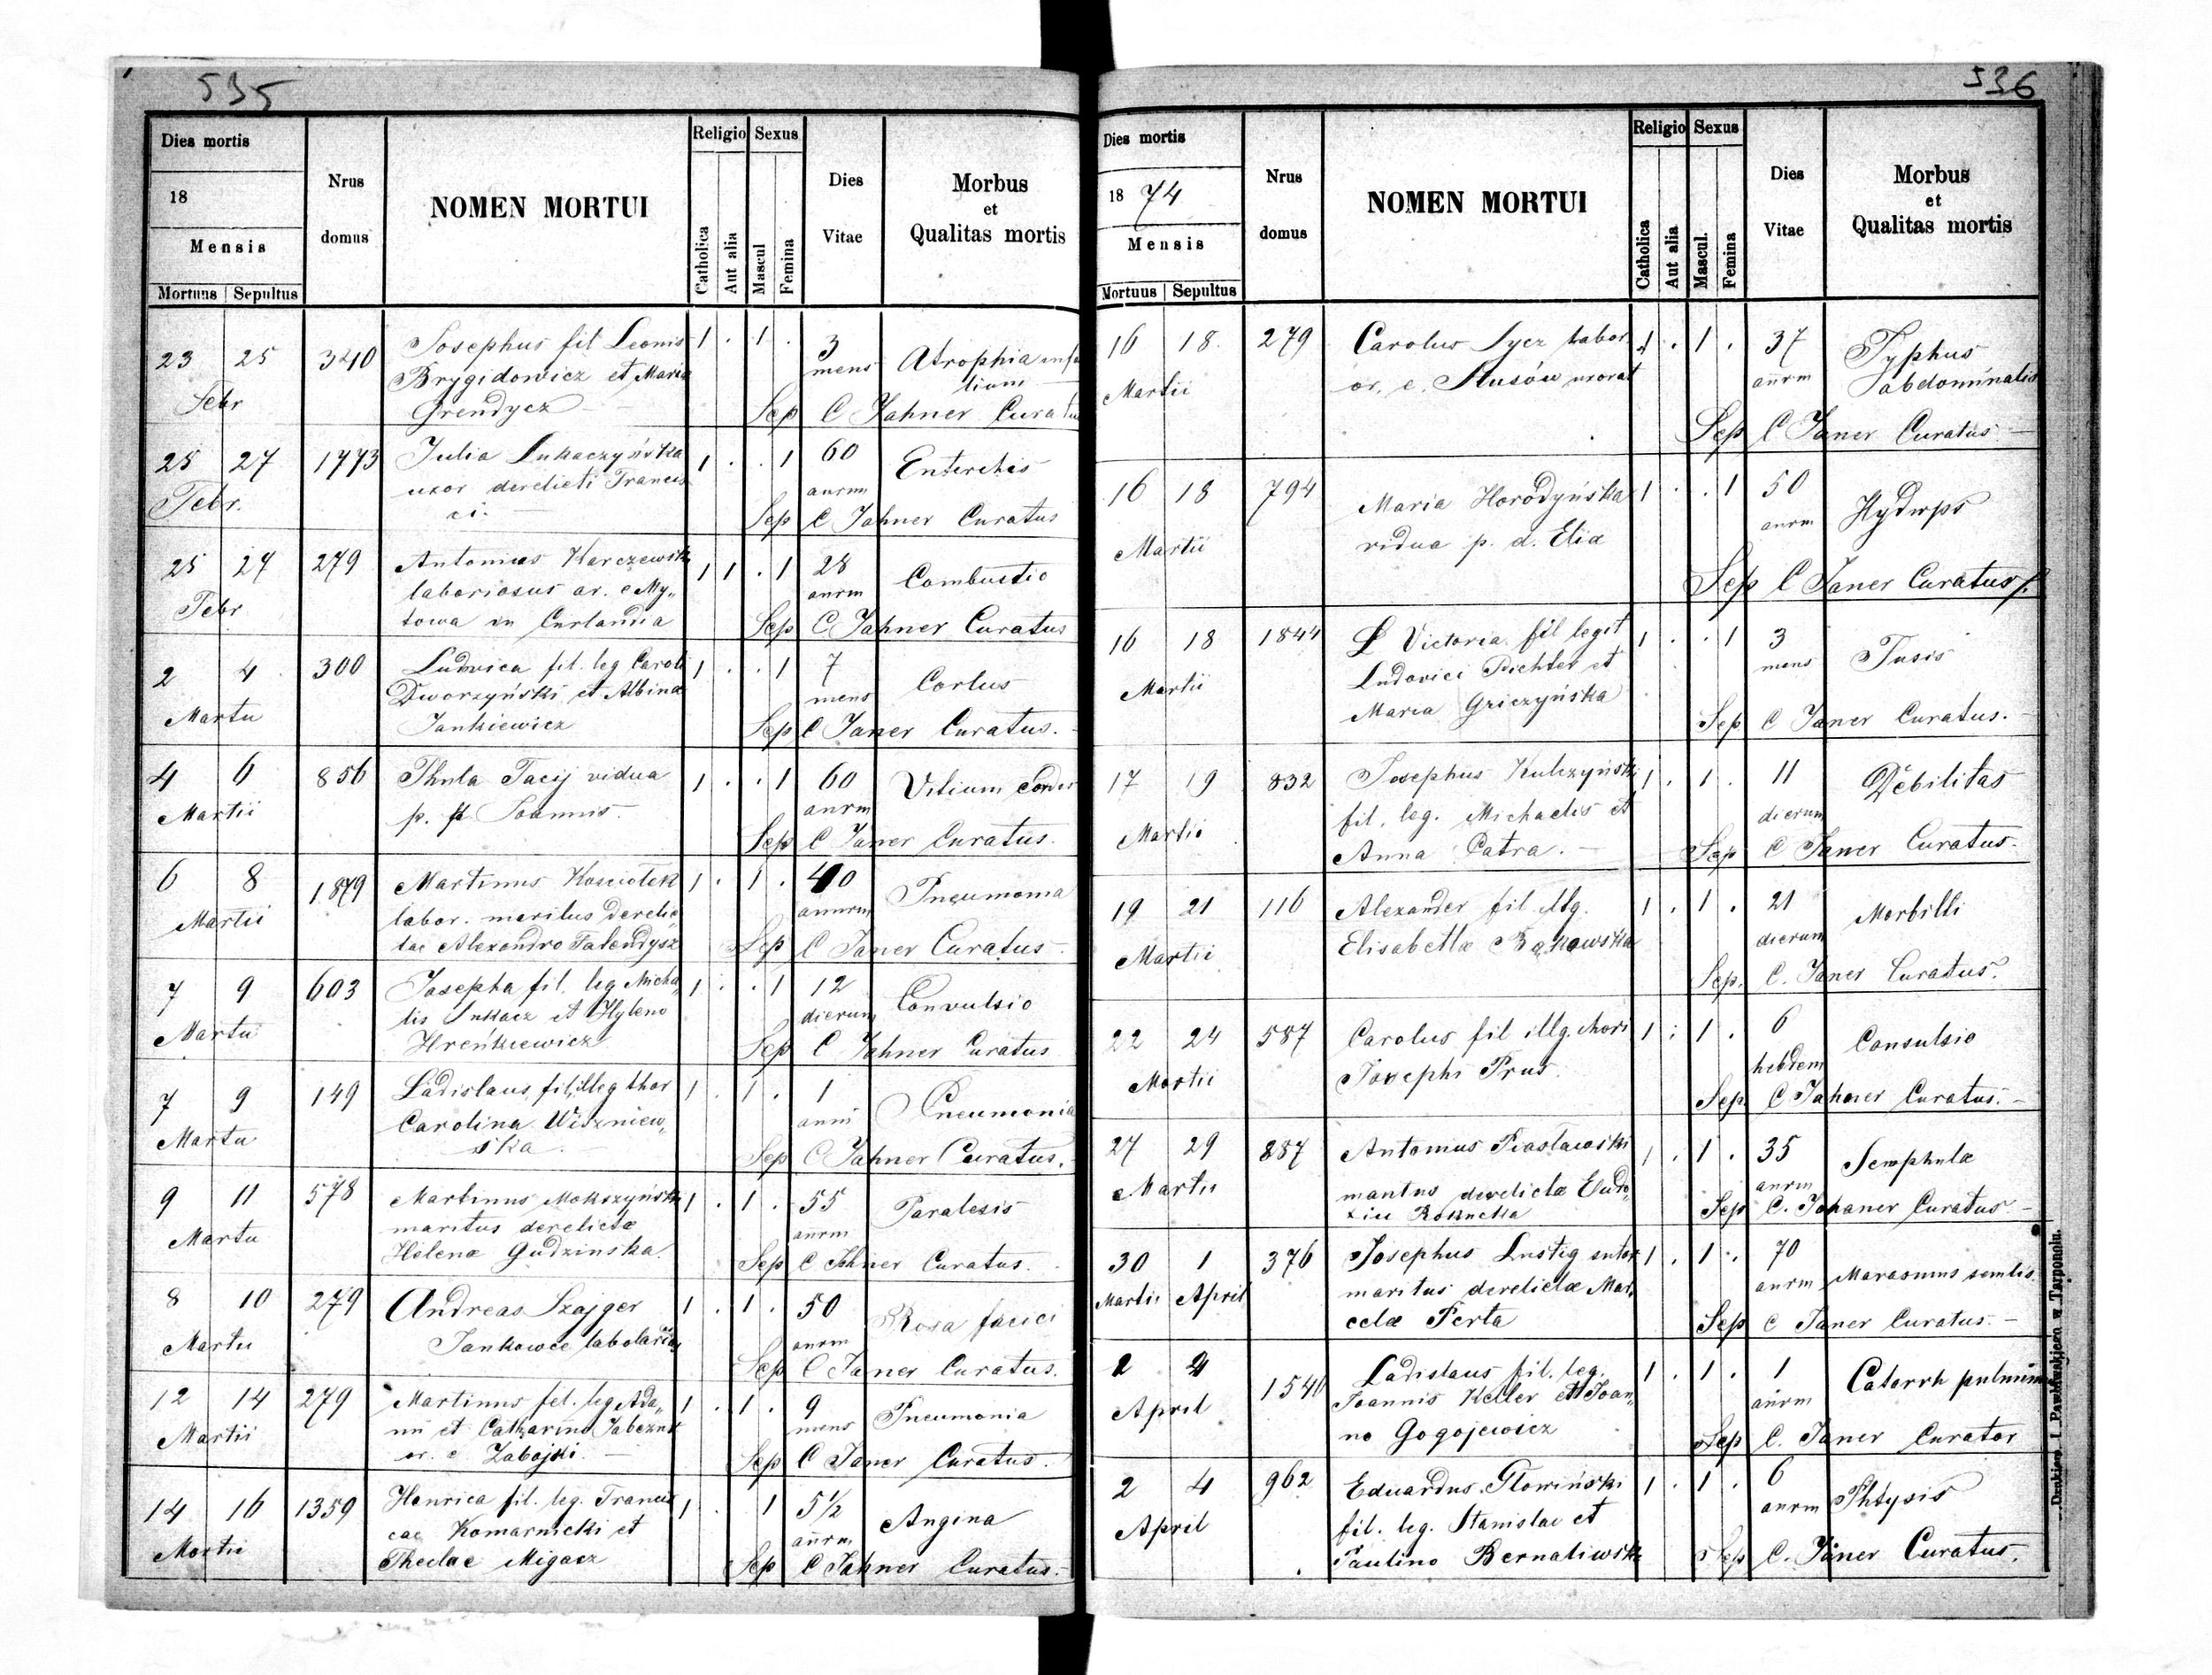 535
Dies mortis
18
Mensis
Mortuus Sepultus
Nrus domus
NOMEN MORTUI
Religio Sexus
Catholica Aut alia Mascul Femina
Dies Vitae
Morbus et Qualitas mortis
23 25 340 Josephus fil Leonis 1 . 1 . 3 Atrophia infa
Febr Brygidowicz et Maria mens tium
Grendycz Sep C Jahner Curatus
25 27 1773 Julia Lukaczyńska 1 . . 1 60 Enterchis
Febr. uxor derelicti Francis anrm
ci. Sep C Jahner Curatus
25 27 279 Antonius Karczewsk 1 1 . 1 28 Combustio
Febr laboriosus or. e My„ anrm
towa in Curlandia Sep C Jahner Curatus
2 4 300 Ludwica fil. leg Caroli 1 . . 1 7 Cortus
Martii Dworzyński et Albina mens
Jankiewicz Sep C Janer Curatus.
4 6 856 Thula Tacij vidua 1 . . 1 60 Vitium Cordis
Martii p. Joannis. anrm
Sep C Janer Curatus.
6 8 1879 Martinus Kosciołek 1 . 1 . 40 Pneumonia
Martii labor. maritus derelic annrm
tae Alexandro Talendysz Sep C Janer Curatus.
7 9 603 Josepha fil. leg Micha„ 1 . . 1 12 Convulsio
Martii lis Lukacz et Hyleno dierum
Hreńkiewicz Sep C Jahner Curatus
7 9 149 Ladislaus, fil, illeg thor 1 . 1 . 1 Pneumonia
Martii Carolina Wiszniew„ anni
ska. Sep C Jahner Curatus.
9 11 578 Martinus Mokszyński 1 . 1 . 55 Paralesis
Martii maritus derelictæ anrm
Helenæ Gudzinska. Sep C Jahner Curatus.
8 10 279 Andreas Szajger 1 . 1 . 50 Rosa faciei
Martii Jankowce anrm
Sep C Janer Curatus.
12 14 279 Martinus fil. leg Ada„ 1 . 1 . 9 Pneumonia
Martii mi et Catharino mens
or. e Zabojki. Sep C Janer Curatus.
14 16 1359 Henrica fil. leg. Francis 1 . 1 5½ Angina
Martii cae Komarnicki et anrm
Theclae Migacz Sep C Jahner Curatus.
536
Dies mortis
1874
Mensis
Mortuus Sepultus
Nrus domus
NOMEN MORTUI
Religio Sexus
Catholica Aut alia Mascul. Femina
Dies Vitae
Morbus et Qualitas mortis
16 18. 279 Carolus Lycz labor. 1 . 1 . 37 Typhus
Martii or. e. uxorat anrm abdominalis
Sep C Janer Curatus
16 18 794 Maria Horodyńska 1 . . 1 50 Hydrops
Martii vidua p. d. Eliæ anrm
Sep C Janer Curatus
16 18 1844 Victoria fil legit 1 . . 1 3 Tusis
Martii Ludovici Richter et mens
Maria Griczyńska Sep C Janer Curatus.
17 19 832 Josephus Kulczyński 1 . 1 . 11 Debilitas
Martii fil. leg. Michaelis et dierum
Anna Patra. Sep C Janer Curatus.
19 21 116 Alexander fil illg. 1 . 1 . 21 Morbilli
Martii Elisabethæ Bąkowska dierum
Sep. C. Janer Curatus.
22 24 587 Carolus fil illg. thori 1 : 1 . 6 Consulsio
Martii Josephi Prus. hebdem
Sep. C Jahner Curatus.
27 29 887 Antonius Piastawski 1 . 1 . 35 Scrophulæ
Martii maritus derelictæ Eudo„ anrm
xiæ Sep C. Johaner Curatus
30 1 376 Josephus Lustig sutor 1 . 1 . 70 Marasmus senilis.
Martii April maritus derelictæ Mar„ anrm
celæ Perta Sep C Janer Curatus.
2 4 1540 Ladislaus fil. leg. 1 . 1 . 1 Catarrh pulmium
April Joannis Keller et Joan„ anrm
no Gogojewicz Sep C. Janer Curator
2 4 962 Eduardus Głowiński 1 . 1 . 6 Phtysis
April fil. leg. Stanislae et anrm
Paulino Bernatiwska Sep C. Janer Curatus.
Drukiem J. Pawłowskiego w Tarnopolu.